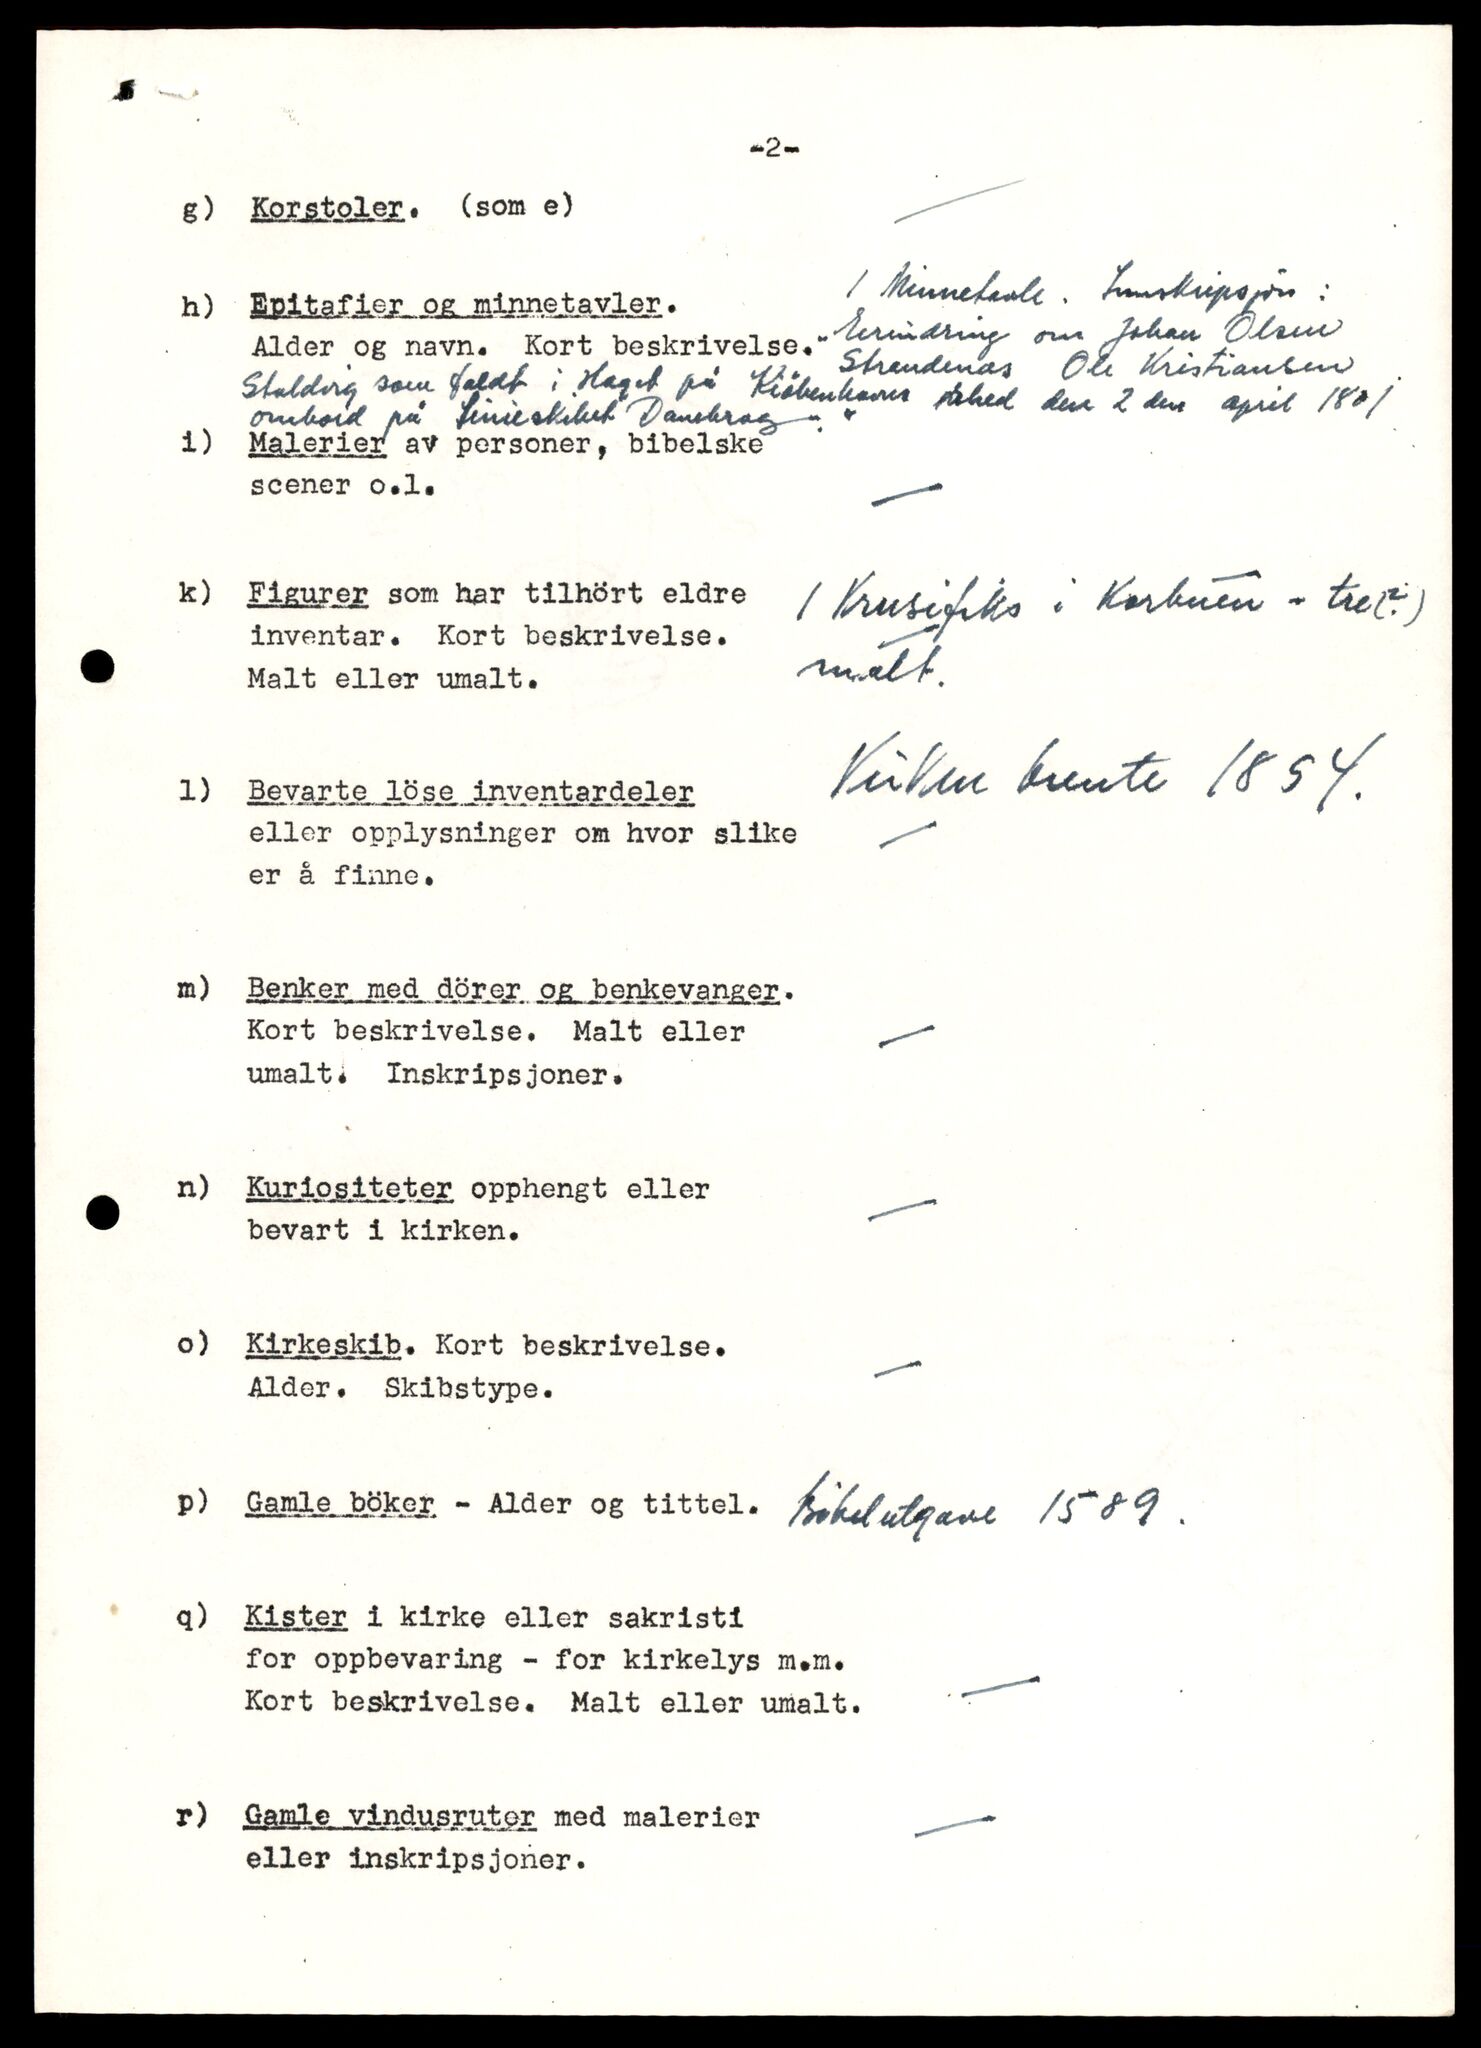 -2-
g) Korstoler. (som e) —
h) Epitafier og minnetavler. 1 Minnetavle. Innskripsjon:
Alder og navn. Kort beskrivelse. "Erindring om Johan Olsen
Strandenæs Ole Kristiansen
Stuldvig som faldt i Slaget på Kiöbenhavns Rhed den 2 den april 1801
ombord på Linieskibet Danebrog".
i) Malerier av personer, bibelske
scener o.l. —
k) Figurer som har tilhört eldre 1 Krusifiks i Korbuen - tre(?)
inventar. Kort beskrivelse.
Malt eller umalt. malt.
Kirken brente 1854.
l) Bevarte löse inventardeler
eller opplysninger om hvor slike —
er å finne.
m) Benker med dörer og benkevanger.
Kort beskrivelse. Malt eller —
umalt. Inskripsjoner.
n) Kuriositeter opphengt eller —
bevart i kirken.
o) Kirkeskib. Kort beskrivelse.
Alder. Skibstype. —
p) Gamle böker - Alder og tittel. Bibelutgave 1589.
q) Kister i kirke eller sakristi
for oppbevaring - for kirkelys m.m.
Kort beskrivelse. Malt eller umalt. —
r) Gamle vindusruter med malerier —
eller inskripsjoner.